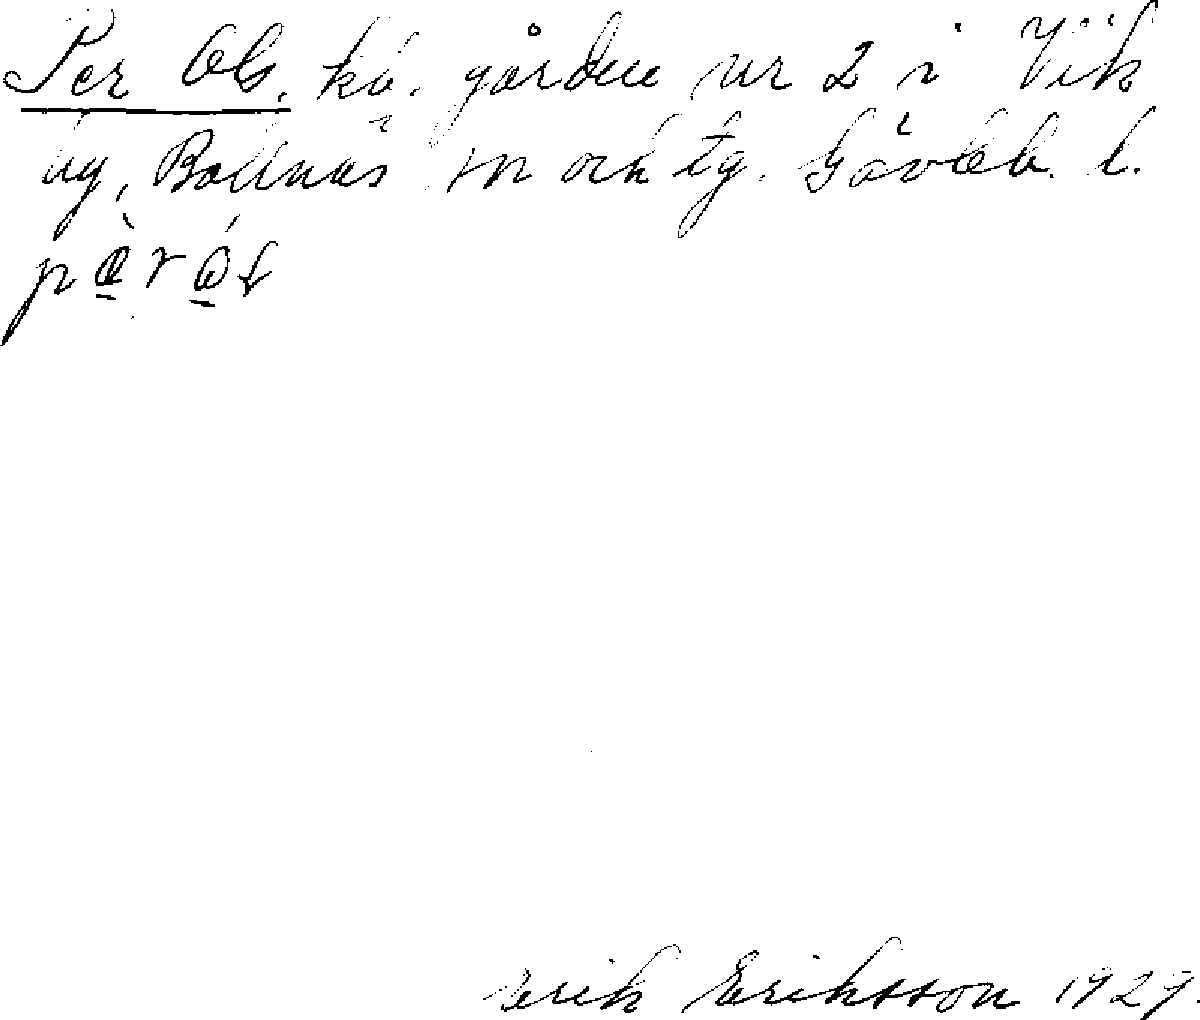 Per Ols. kå. gården nr 2 i Vik
by, Bollnäs sn och tg. Gävleb. l.
Erik Eriksson 1927.